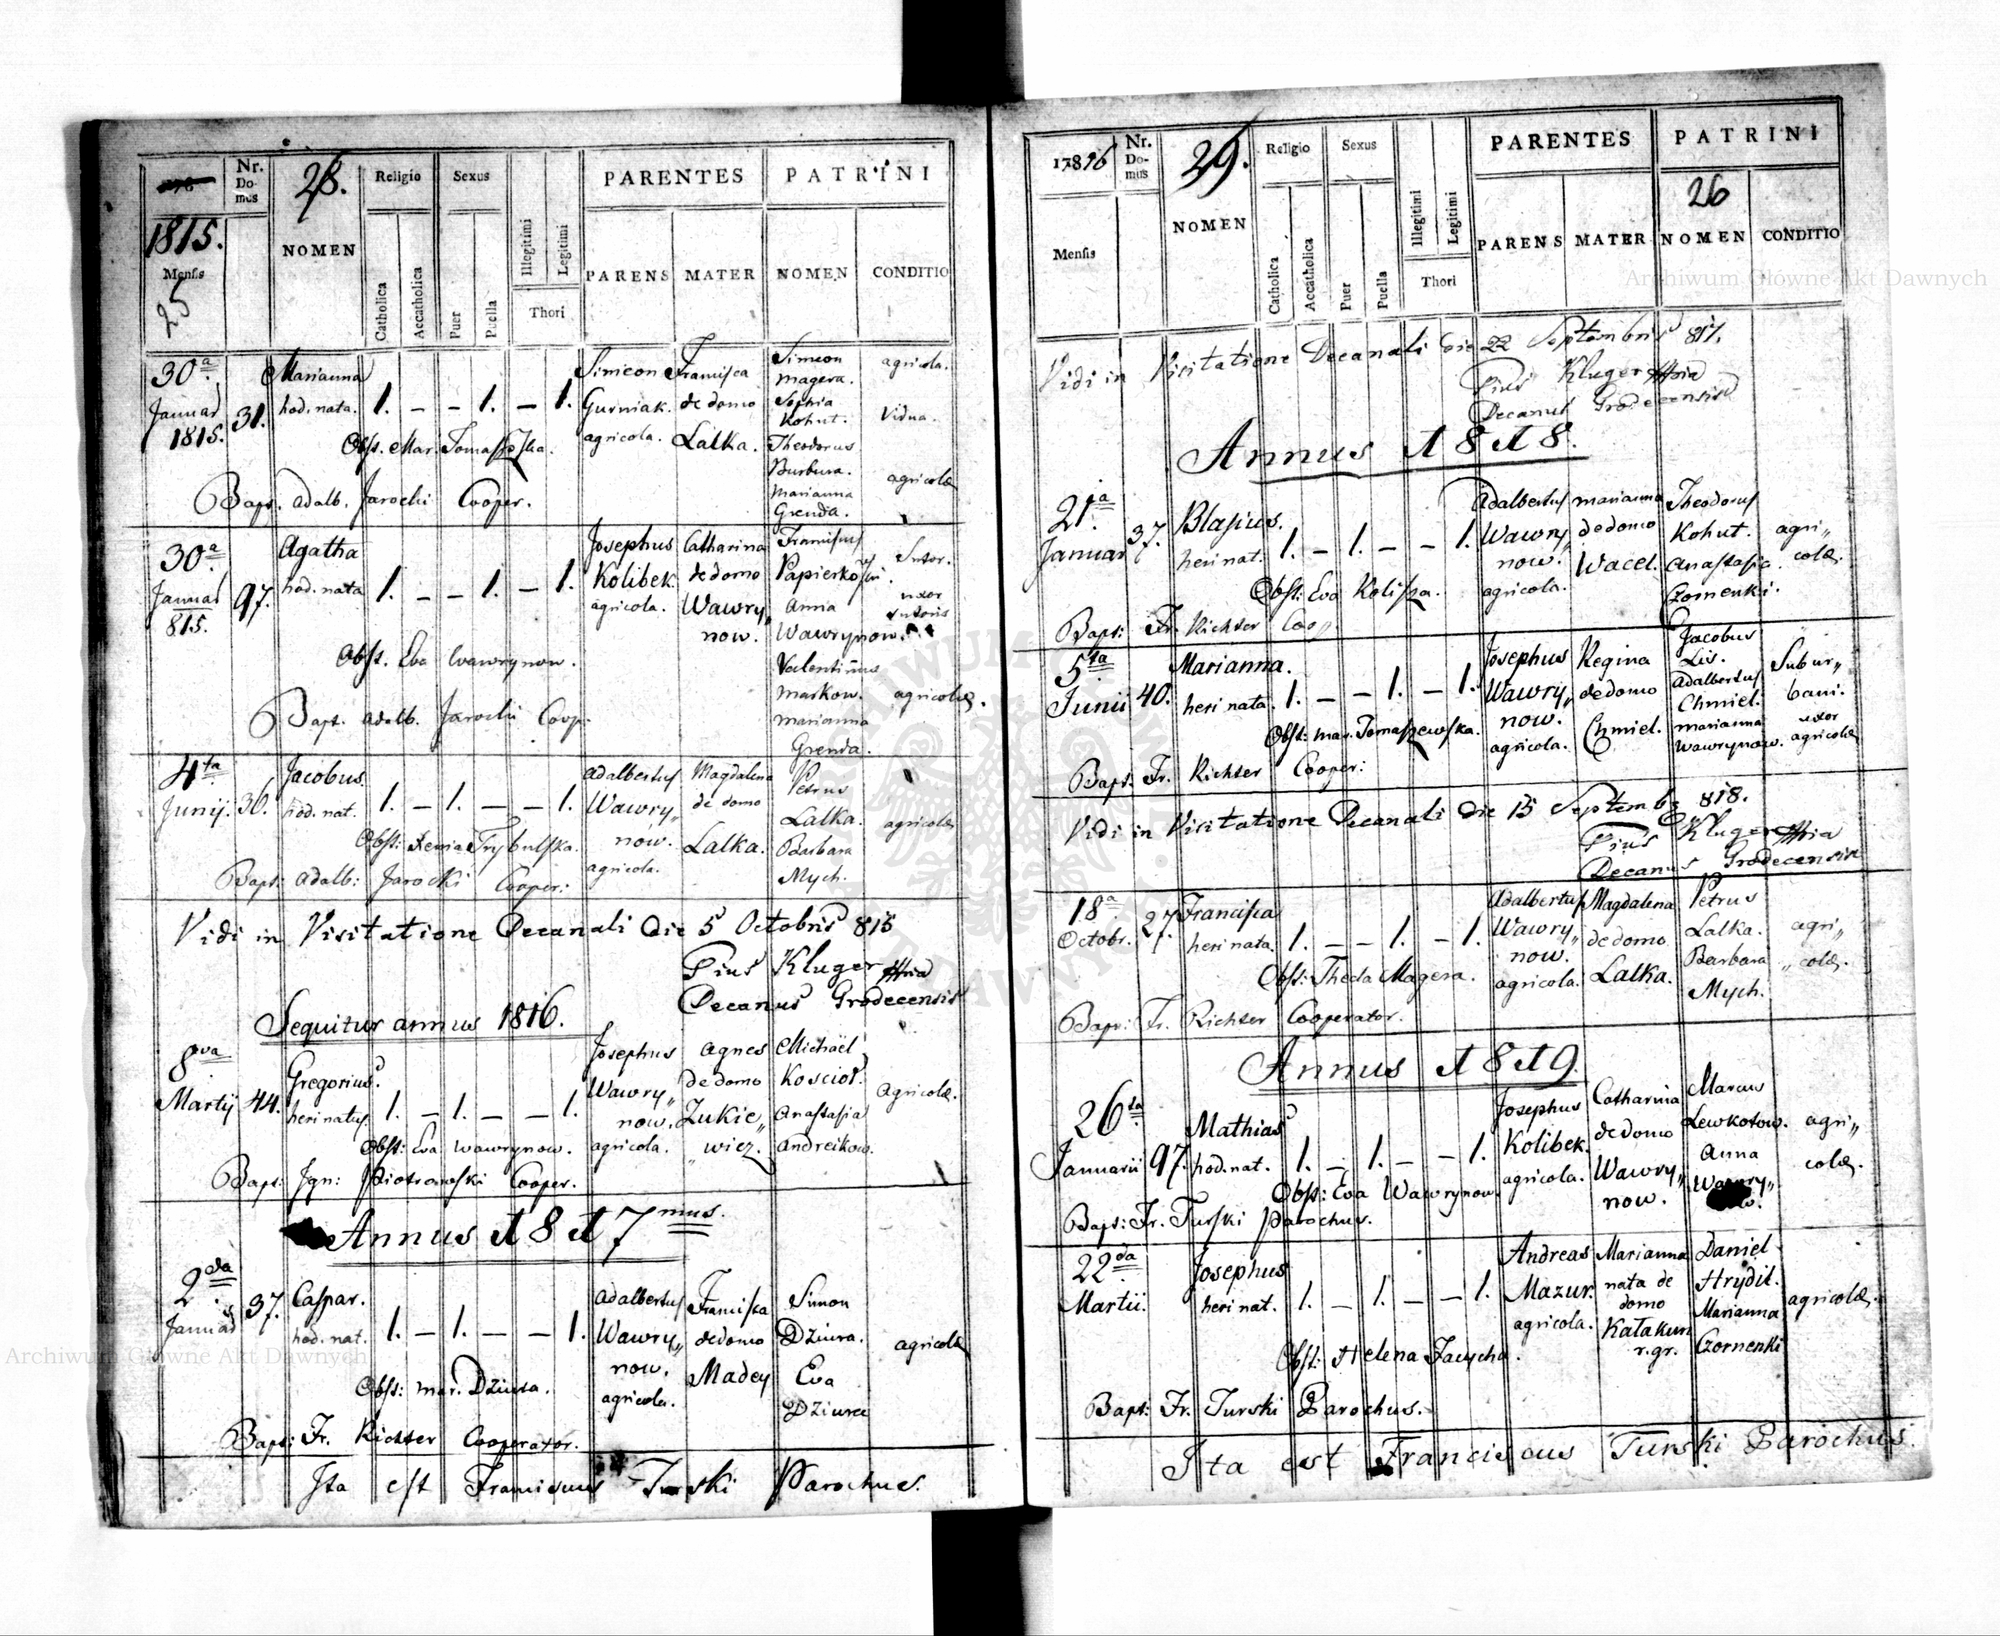 Nr.
Do-
mus
28.
Religio
Sexus
PARENTES
PATRINI
1815.
Mensis
25
NOMEN
Catholica
Accatholica
Puer
Puella
Illegitimi
Legitimi
Thori
PARENS
MATER
NOMEN
CONDITIO
30a
Januar
1815.
31.
Marianna
hod. nata.
1. – – 1. – 1.
Simeon
Gurniak.
agricola.
Francisca
de domo
Lalka.
Simeon
Magera.
Sophia
Kohut.
Theodorus
Burbura.
Marianna
Grenda.
agricola.
Vidua.
agricolæ
Obst. Mar.
Bapt. Adalb. Jarocki Cooper.
30a
Januar
815.
97.
Agatha
hod. nata
1. – – 1. – 1.
Josephus
Kolibek.
agricola.
Catharina
de domo
Wawry„
now.
Franciscus
Anna
Wawrynow.
Valentinus
Markow.
Marianna
Grenda.
Sutor.
uxor
sutoris
agricolæ.
Obst. Eva Wawrynow.
Bapt. Adalb. Jarocki Coop.
4ta
Junij.
36.
Jacobus
hod. nat.
1. – 1. – – 1.
Adalbertus
Wawry„
now.
agricola.
Magdalena
de domo
Lalka.
Petrus
Lalka.
Barbara
Mych.
agricolæ
Obst: Trybulska.
Bapt: Adalb: Jarocki Cooper:
Vidi in Visitatione Decanali die 5 Octobris 815
Pius Kluger
Decanus Grodecensis
Sequitur annus 1816.
8va
Martij
44.
Gregorius.
heri natus.
1. – 1. – – 1.
Josephus
Wawry„
now.
agricola.
Agnes
de domo
Zukie„
wicz.
Michaël
Kosciol.
Anastasia
Andreikow.
Agricolæ.
Obst: Eva Wawrynow.
Bapt: Ign: Piotrowski Cooper.
Annus 1817mus.
2da
Januar
37.
Caspar.
hod. nat.
1. – 1. – – 1.
Adalbertus
Wawry„
now.
agricola.
Francisca
de domo
Madey
Simon
Dziura.
Eva
Dziura
agricolæ
Obst: Mar. Dziura.
Bapt: Fr. Richter Cooperator.
Ita est Franciscus Turski Parochus.
17816
Nr.
Do-
mus
29.
NOMEN
Religio
Sexus
PARENTES
PATRINI
26
Mensis
Catholica
Accatholica
Puer
Puella
Illegitimi
Legitimi
Thori
PARENS
MATER
NOMEN
CONDITIO
Vidi in Visitatione Decanali die 22 Septembris 817.
Pius Kluger
Decanus Grodecensis
Annus 1818.
21a
Januar
37.
Blasius.
heri nat.
1. – 1. – – 1.
Adalbertus
Wawry„
now.
agricola.
Marianna
de domo
Wacel.
Theodorus
Kohut.
Anastasia
Czornenki.
agri„
colæ.
Obst: Eva
Bapt: Fr. Richter Coop.
5ta
Junii
40.
Marianna.
heri nata.
1. – – 1. – 1.
Josephus
Wawry„
now.
agricola.
Regina
de domo
Chmiel.
Jacobus
Lis.
Adalbertus
Chmiel.
Marianna
Wawrynow.
Subur„
bani.
uxor
agricolæ
Obst: Mar. Tomaszewska.
Bapt: Fr. Richter Cooper:
Vidi in Visitatione Decanali die 15 Septemb 818.
Pius Kluger
Decanus Grodecensis
18a
Octobr.
27.
Francisca
heri nata.
1. – – 1. – 1.
Adalbertus
Wawry„
now.
agricola.
Magdalena
de domo
Lalka.
Petrus
Lalka.
Barbara
Mych.
agri„
„colæ.
Obst: Thecla Magera.
Bapt: Fr. Richter Cooperator.
Annus 1819.
26ta
Januarii
97.
Mathias
hod. nat.
1. – 1. – – 1.
Josephus
Kolibek.
agricola.
Catharina
de domo
Wawry„
now.
Marcus
Lewkotow.
Anna
Wawry„
agri„
colæ.
Obst: Eva Wawrynow
Bapt: Fr. Turski Parochus.
22da
Martii.
Josephus
heri nat.
1. – 1. – – 1.
Andreas
Mazur.
agricola.
Marianna
nata de
domo
r. gr.
Daniel
Hrydil.
Marianna
Czornenki
agricolæ.
Obst: Helena
Bapt: Fr. Turski Parochus.
Ita est Franciscus Turski Parochus.
Archiwum Główne Akt Dawnych
Archiwum Główne Akt Dawnych